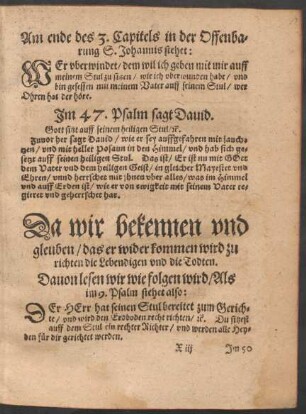 Am ende des 3. Capitels in der Offenba-
rung S. Johannis stehet:
WEr vberwindet / dem wil ich geben mit mir auff
meinem Stul zu sitzen / wie ich vberwunden habe / vnd
bin gesessen mit meinem Vater auff seinem Stul / wer
Ohren hat der höre.
Im 47. Psalm sagt Dauid.
Gott sitzt auff seinem heiligen Stul / ꝛc.
Zuuor her sagt Dauid / wie er sey auffgefahren mit jauch-
tzen / vnd mit heller Posaun in den Himmel / vnd hab sich ge-
setzt auff seinen heiligen Stul. Das ist / Er ist nu mit GOtt
dem Vater vnd dem heiligen Geist / in gleicher Mayestet vnd
Ehren / vnnd herrschet mit jhnen vber alles / was im Himmel
vnd auff Erden ist / wie er von ewigkeit mit seinem Vater re-
gieret vnd geherrschet hat.
Da wir bekennen vnd
gleuben / das er wider kommen wird zu
richten die Lebendigen vnd die Todten.
Dauon lesen wir wie folgen wird / Als
im 9. Psalm stehet also:
DEr HErr hat seinen Stul bereitet zum Gerich-
te / vnd wird den Erdboden recht richten / ꝛc. Du sitzest
auff dem Stul ein rechter Richter / vnd werden alle Hey-
den für dir gerichtet werden.
X iij Im 50